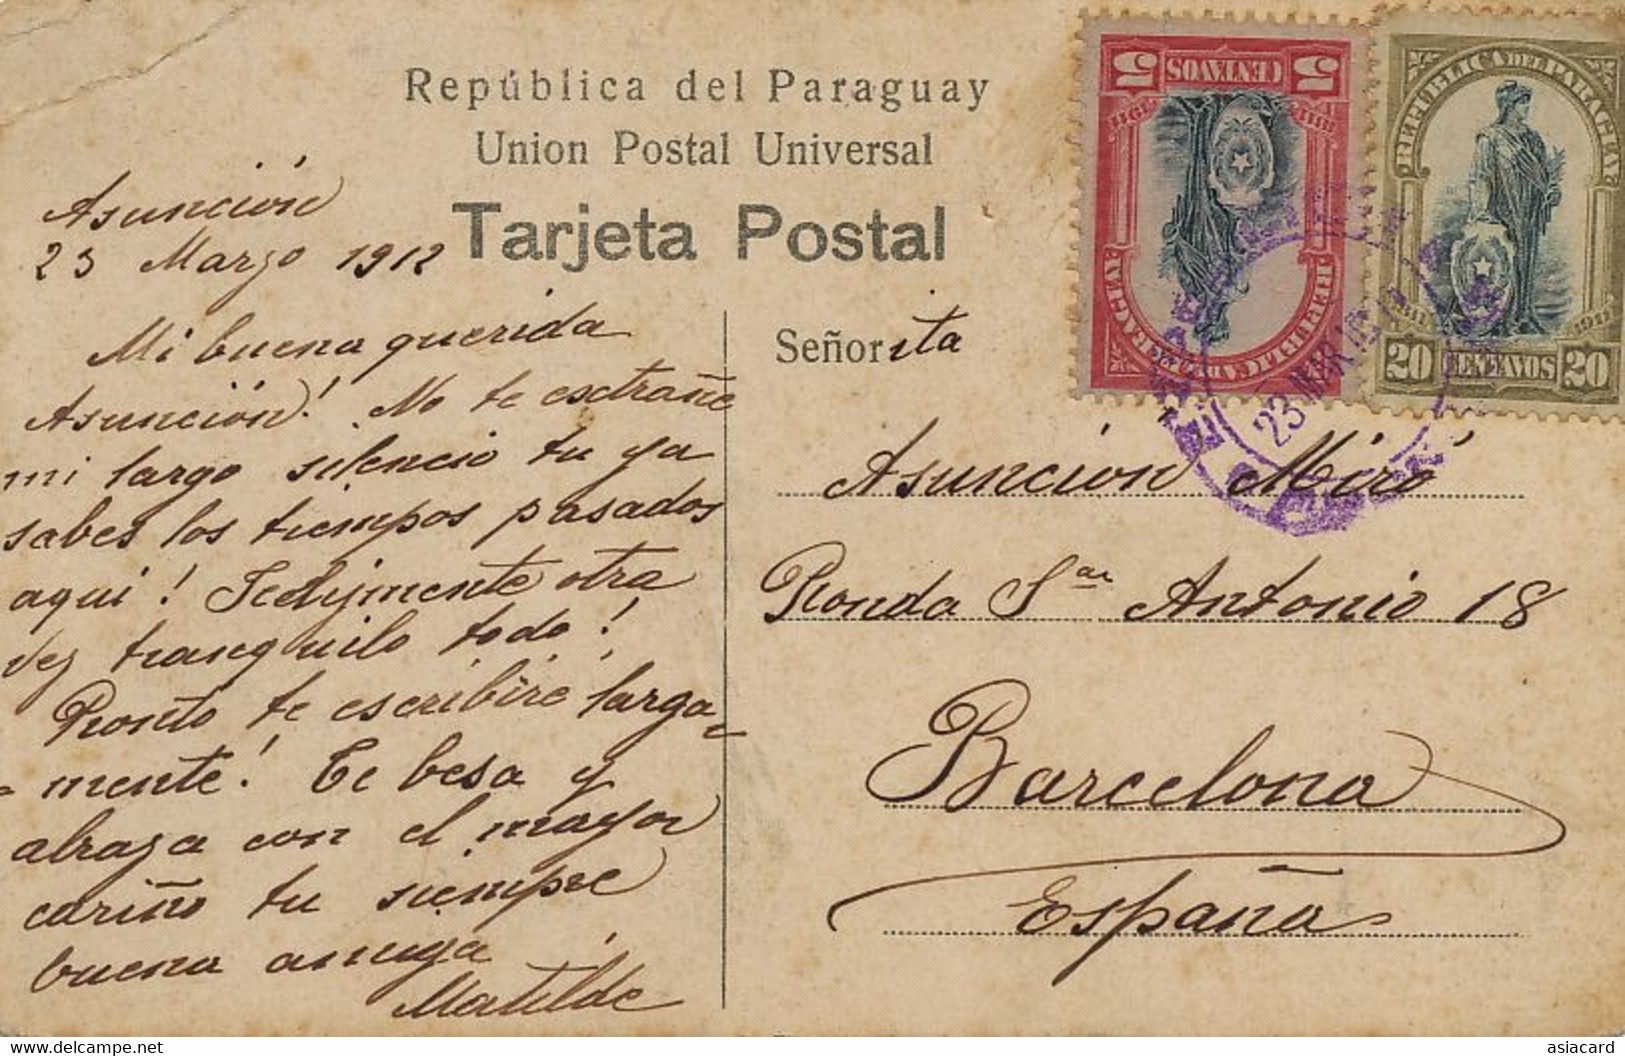 República del Paraguay
Union Postal Universal
Tarjeta Postal
Asunción
23 Marzo 1912
Mi buena querida
Asunción! No te esxtrañe
mi largo silencio tu ya
sabes los tiempos pasados
aqui! Felizmente otra
vez tranquilo todo!
Pronto te escribiré larga=
=mente! Te besa y
abraza con el mayor
cariño tu siempre
buena amiga
Matilde
Señorita
Asuncion Miró
Ronda San Antonio 18
Barcelona
España
5 CENTAVOS 5
1811 1911
REPUBLICA DEL PARAGUAY
REPUBLICA DEL PARAGUAY
1811 1911
20 CENTAVOS 20
23 MAR
delcampe.net
asiacard